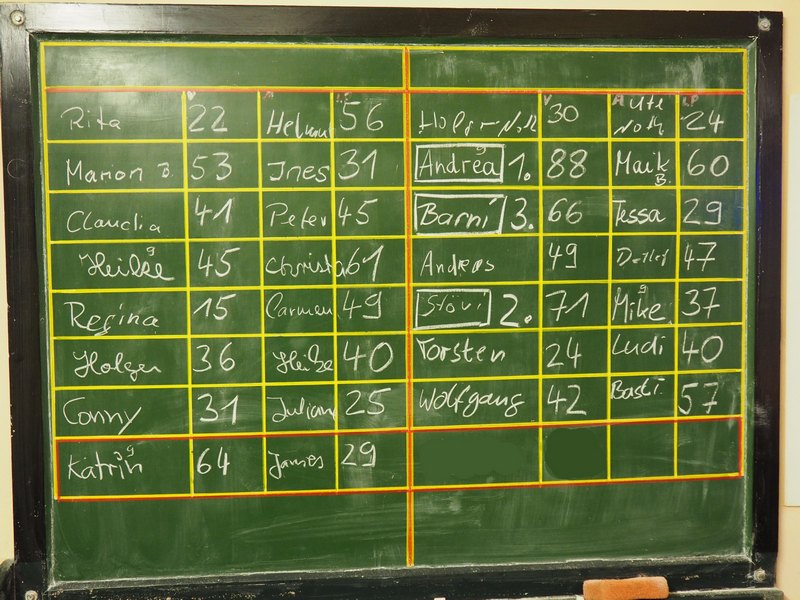 Rita 22 Helmu 56 30 Ute Noth 24
Marion B. 53 Ines 31 Andrea 1. 88 Maik B. 60
Claudia 41 Peter 45 Barni 3. 66 Tessa 29
Heike 45 Christa 61 Andreas 49 Detlef 47
Regina 15 Carmen 49 Stövi 2. 71 Mike 37
Holger 36 Heike 40 Torsten 24 Ludi 40
Conny 31 Julian 25 Wolfgang 42 Basti 57
Katrin 64 James 29